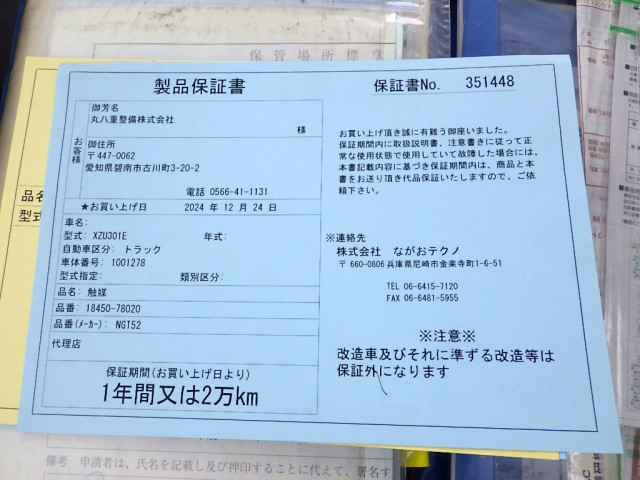 保管場所標章
製品保証書
保証書No. 351448
お客様
御芳名
丸八重整備株式会社
様
御住所
〒447-0062
愛知県碧南市古川町3-20-2
電話 0566-41-1131
★お買い上げ日 2024 年 12 月 24 日
車名:
型式: XZU301E 年式:
自動車区分: トラック
車体番号: 1001278
型式指定: 類別区分:
品名: 触媒
品番: 18450-78020
品番(メーカー): NGT52
代理店
保証期間(お買い上げ日より)
1年間又は2万km
お買い上げ頂き誠に有難う御座いました。
保証期間内に取扱説明書、注意書きに従って正
常な使用状態で使用していて故障した場合には、
本書記載内容に基づき保証期間内は、商品と本
書をお送り頂き代品保証いたしますので、ご依
頼下さい。
※連絡先
株式会社 ながおテクノ
〒 660-0806 兵庫県尼崎市金楽寺町1-6-51
TEL 06-6415-7120
FAX 06-6481-5955
※注意※
改造車及びそれに準ずる改造等は
保証外になります
品名
型式
備考 申請者は、氏名を記載し及び押印することに代えて、署名す